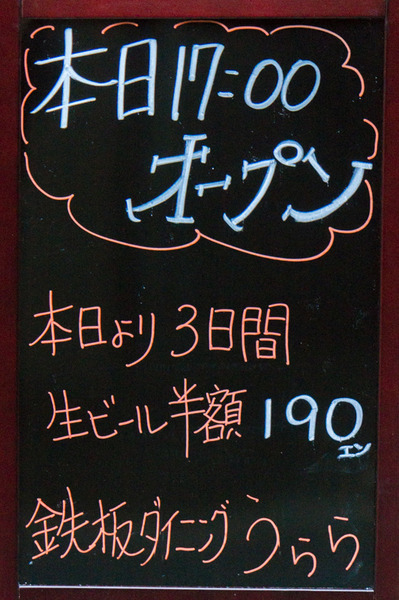 本日17:00
オープン
本日より3日間
生ビール半額190
エン
鉄板ダイニングうらら